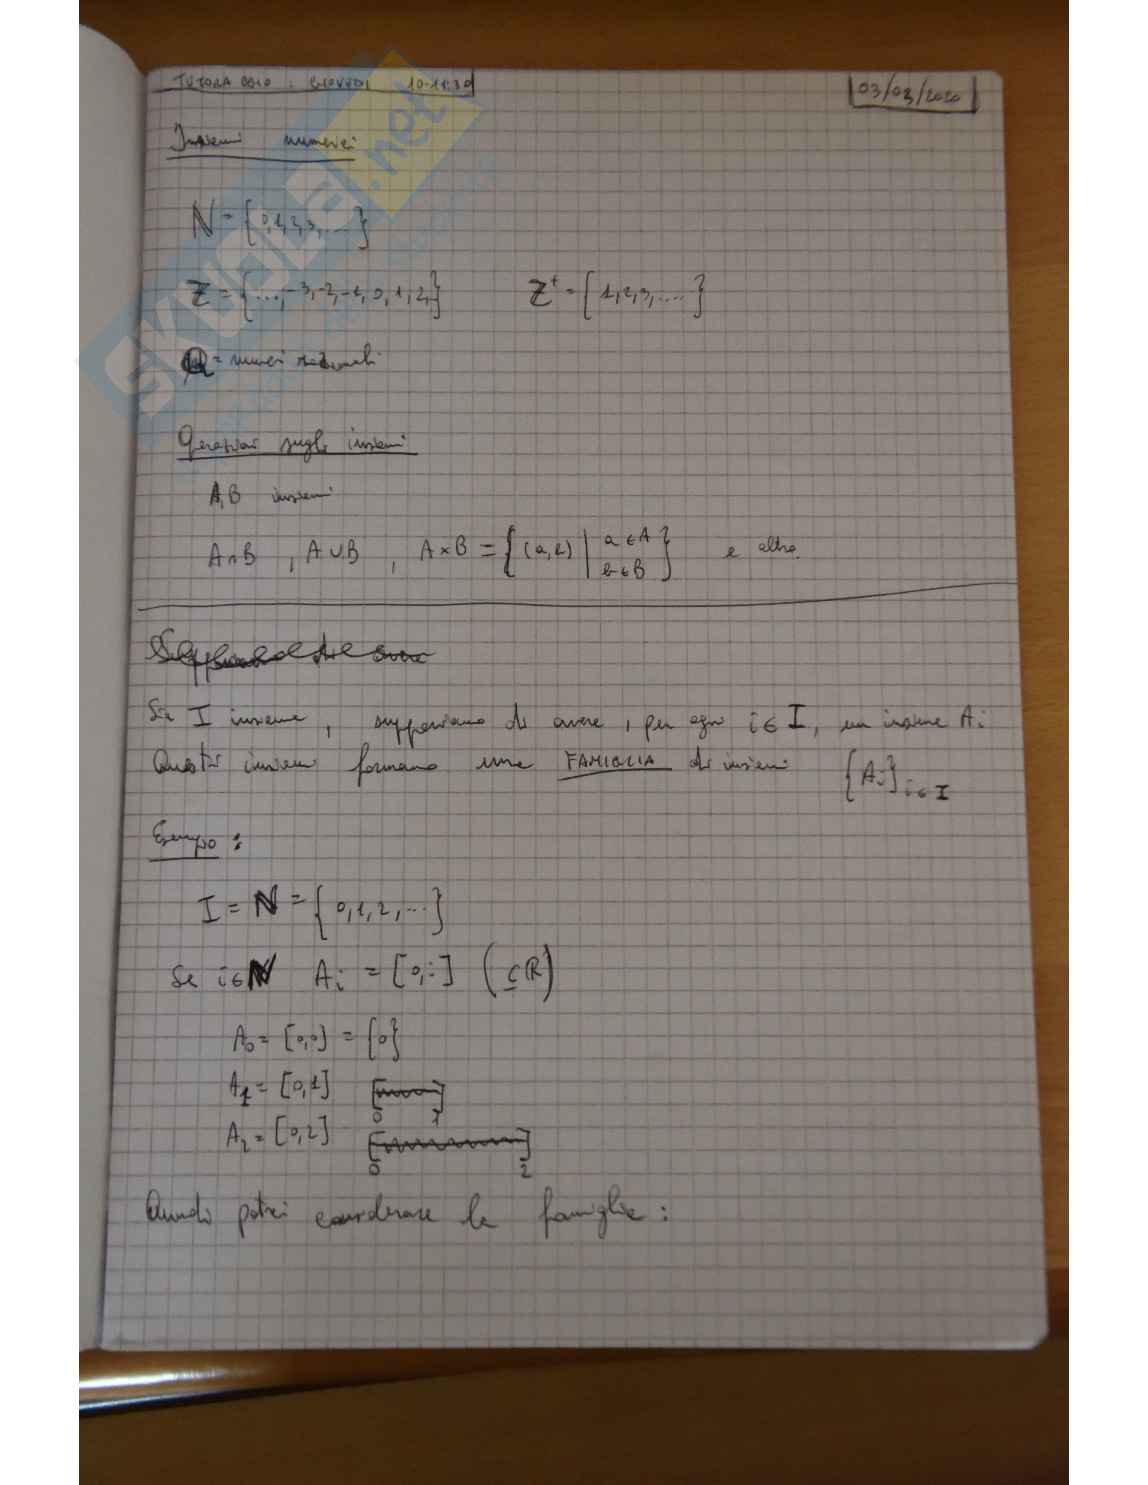 TUTORAGGIO : GIOVEDI 10-11:30
03/03/2020
Insiemi numerici
ℕ = {0,1,2,3,...}
ℤ = {...,-3,-2,-1,0,1,2,} ℤ⁺ = {1,2,3,....}
ℚ = numeri razionali
Operazioni sugli insiemi
A,B insiemi
A∩B , A∪B , A×B = {(a,b) | a∈A b∈B} e altre.
Sia I insieme, supponiamo di avere, per ogni i∈I, un insieme Aᵢ
Questi insiemi formano una FAMIGLIA di insiemi {Aᵢ}ᵢ∈I
Esempio :
I = ℕ = {0,1,2,...}
Se i∈ℕ Aᵢ = [0,i] (⊆ℝ)
A₀ = [0,0] = {0}
A₁ = [0,1] 0 1
A₂ = [0,2] 0 2
Quindi potrei considerare la famiglia :
SKUOLA.net